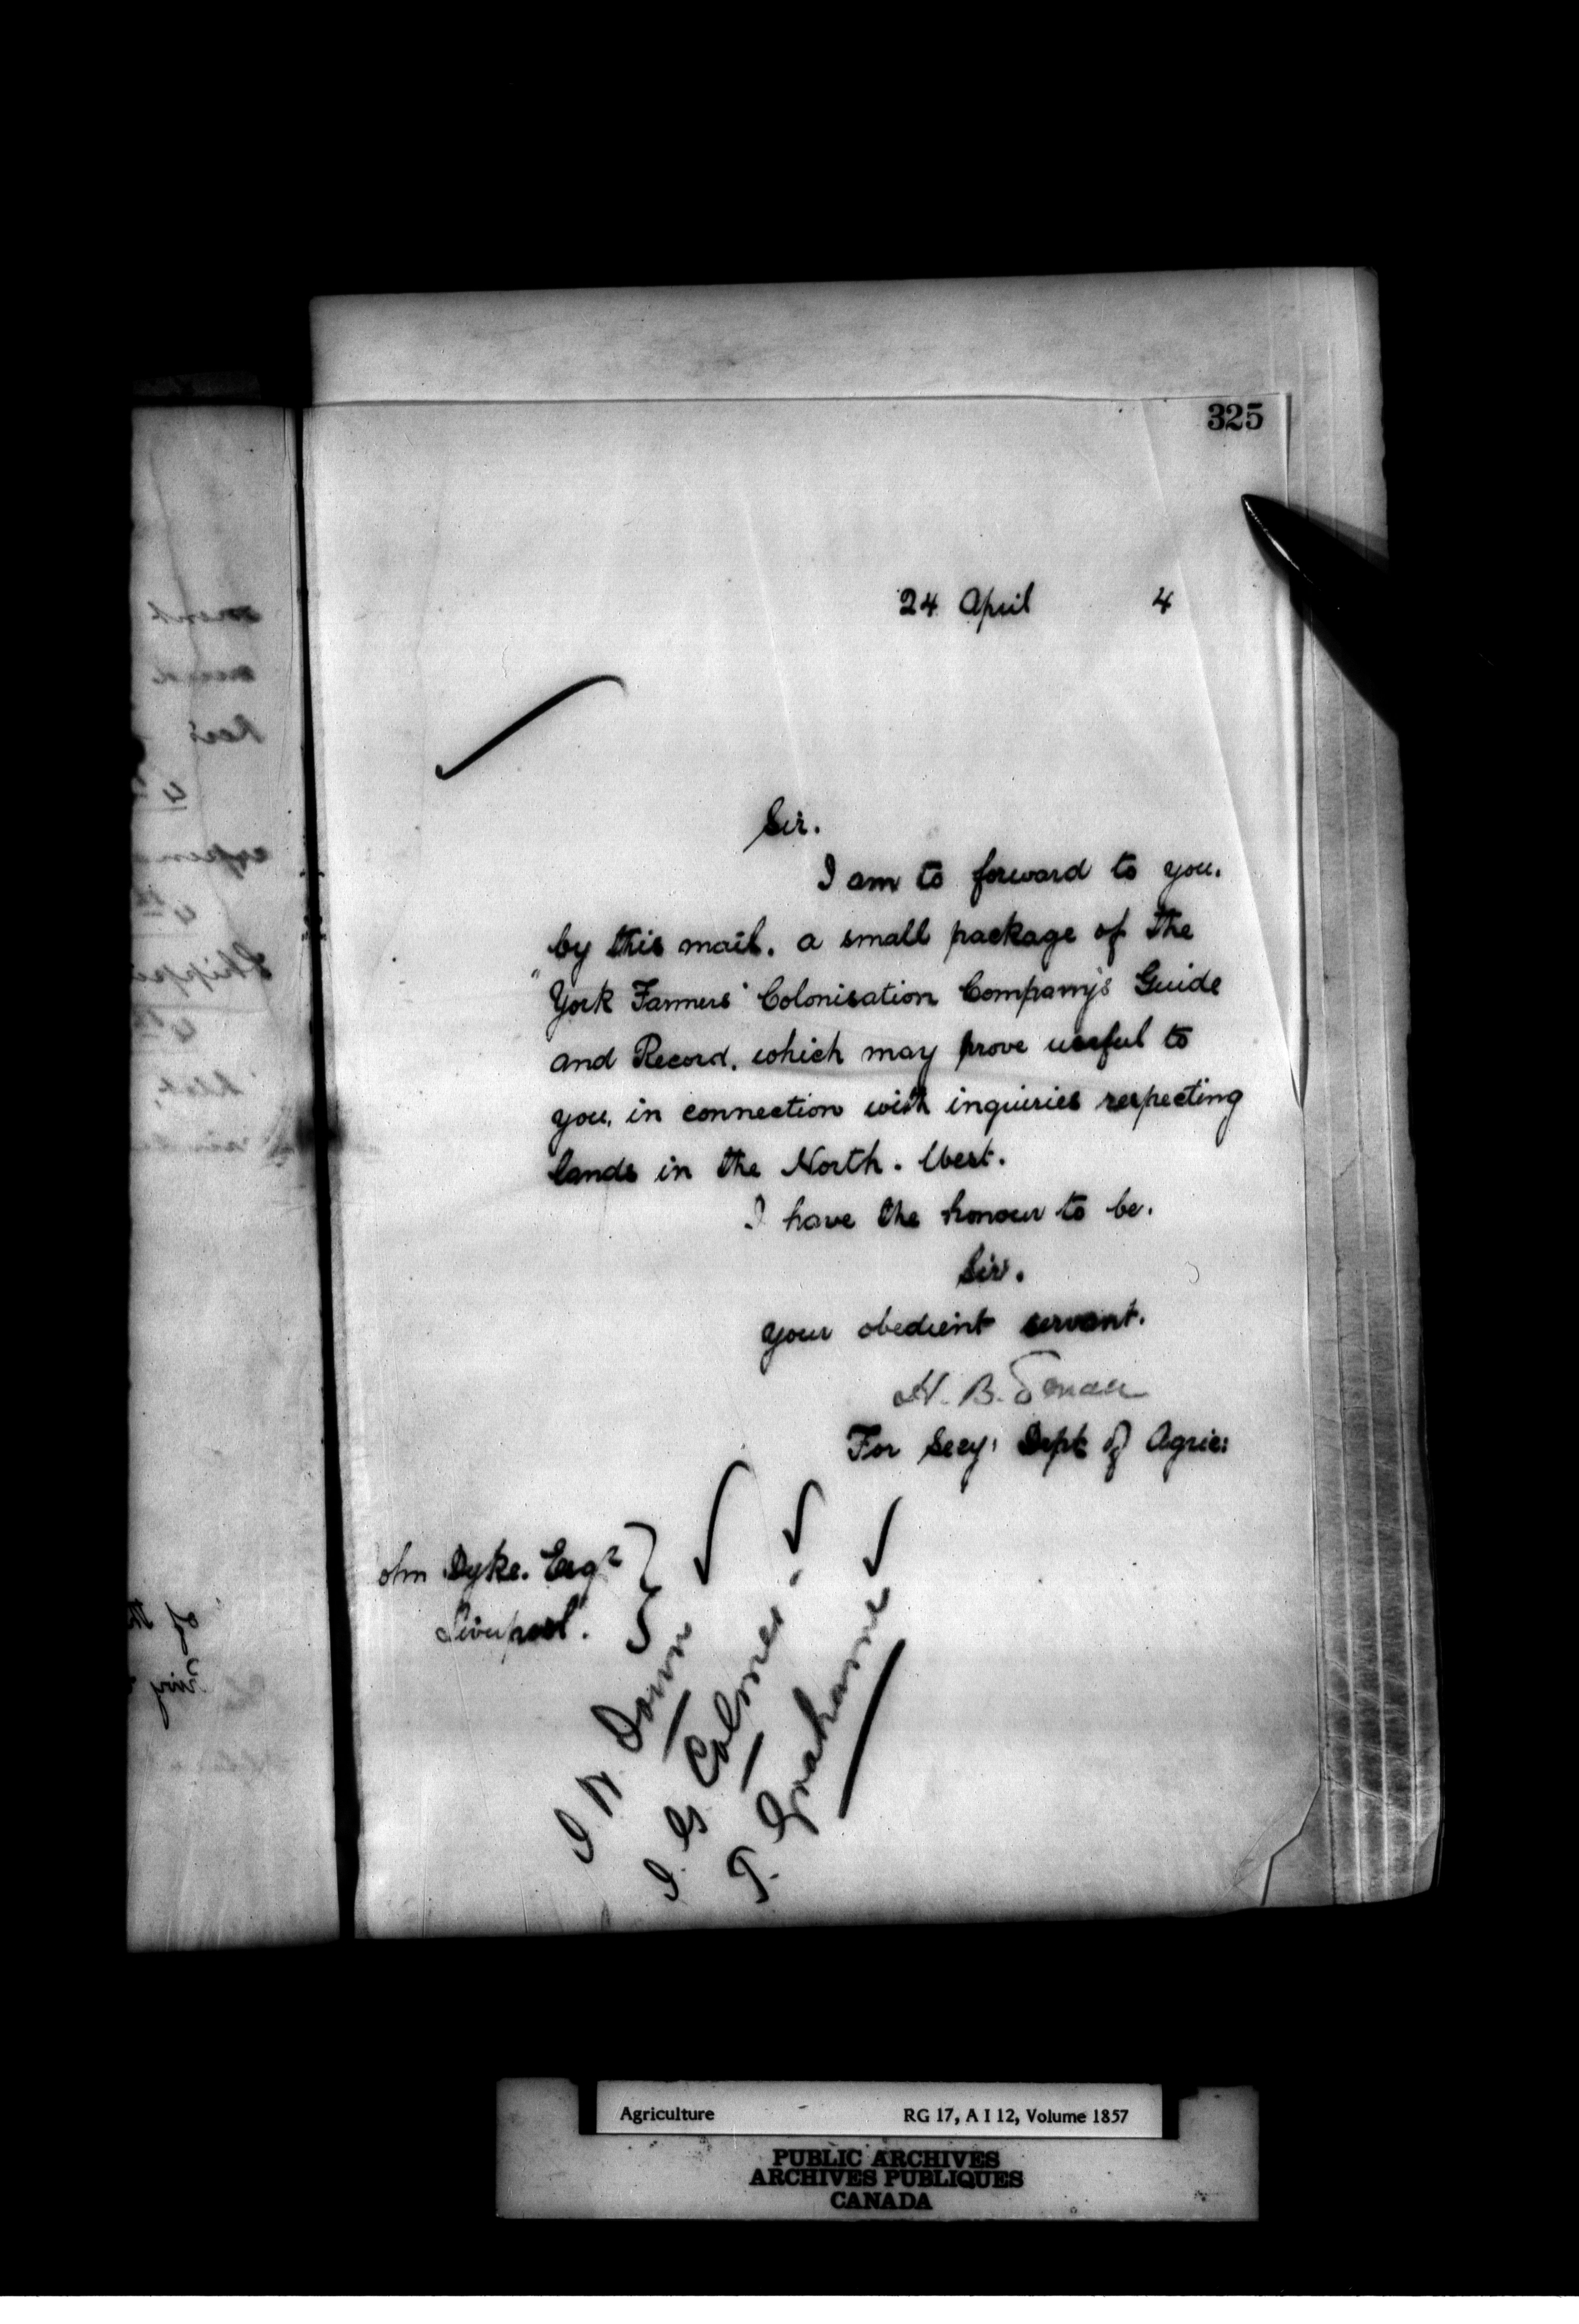 325
24 April 4
Sir.
I am to forward to you.
by this mail. a small package of the
"York Farmers' Colonisation Company's Guide
and Record. which may prove useful to
you, in connection with inquiries respecting
lands in the North. West.
I have the honour to be.
Sir.
your obedient servant.
H. B. Small
For Secy: Dept of Agric:
ohn Dyke. Esqr
Liverpool.
J W Down
J. G. Colmer
T. Grahame
Agriculture RG 17, A I 12, Volume 1857
PUBLIC ARCHIVES
ARCHIVES PUBLIQUES
CANADA